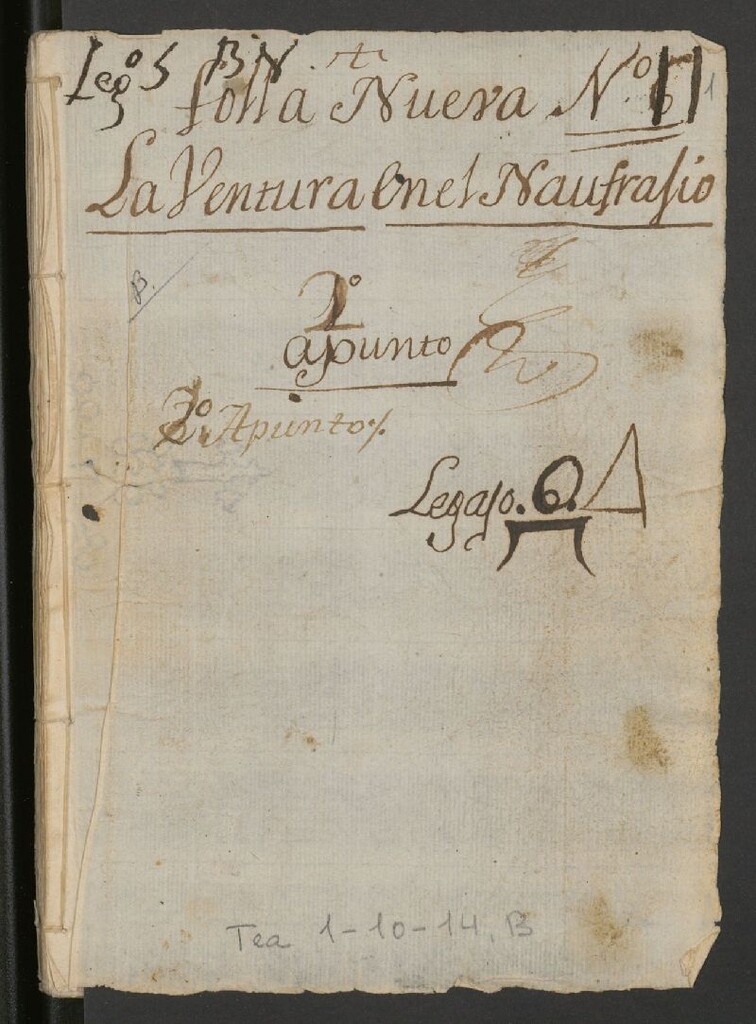 Leg.º 5 B N
folla Nueva N.º 11 1
La Ventura Enel Naufrasio
B.
2º
apunto
2º Apunto
Legajo. 6.
Tea 1-10-14, B